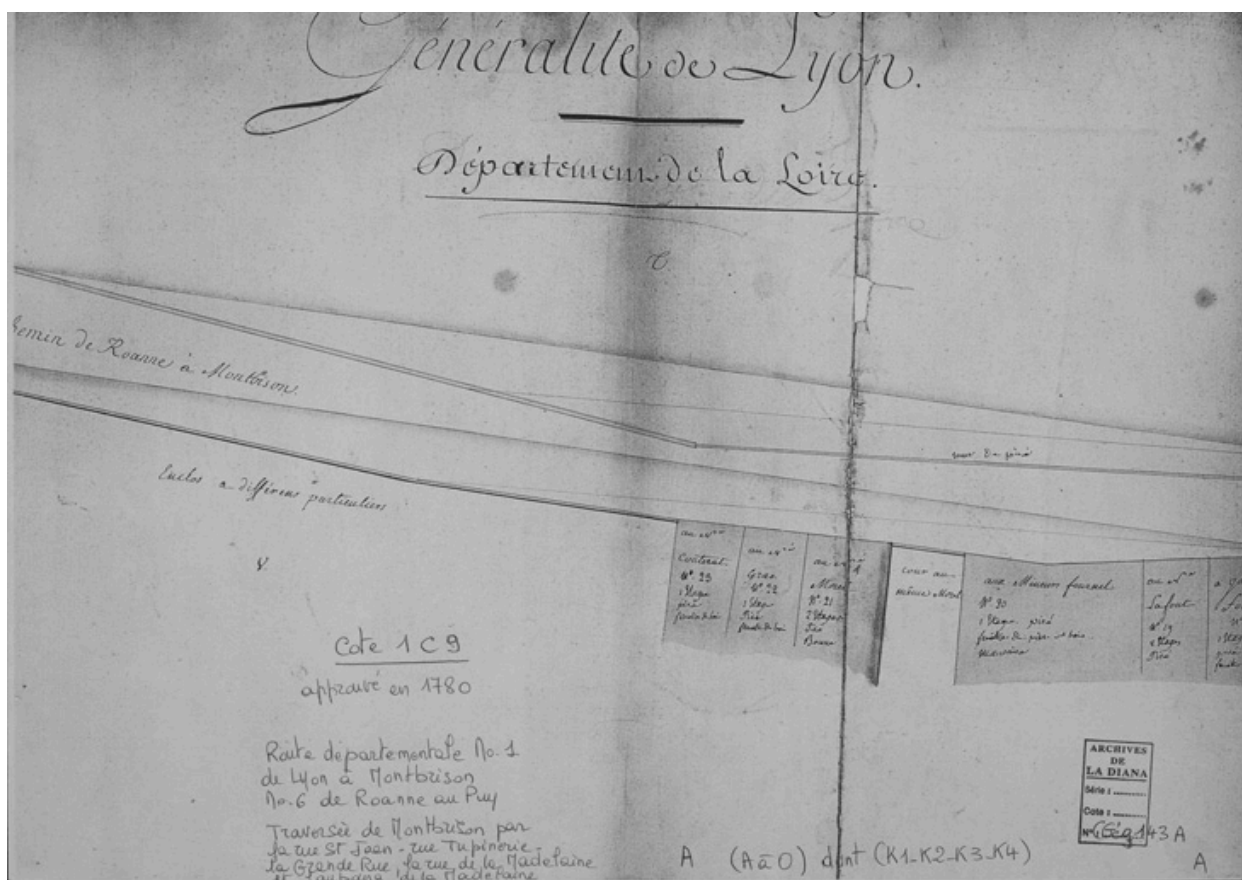 Généralité de Lyon.
Département de la Loire.
Chemin de Roanne à Montbison.
mur En pisé
Enclos a différens particuliers
au Sr
Couturat
N°. 23
1 Etage
pisé
au Sr
Gras
N° 22
1 Etage
Pisé
au Sr
Morel
N° 21
2 Etages
Pisé
cour au
même Morel
aux Mineurs fournel
N° 20
1 Etage pisé
au Sr
Lafont
N° 19
2 Etages
Pisé
Cote 1 C 9
approuvé en 1780
Route départementale No. 1
de Lyon à Montbrison
No. 6 de Roanne au Puy
Traversée de Montbrison par
la rue St Jean - rue Tupinerie -
la Grande Rue, la rue de la Madelaine
de la Madelaine
ARCHIVES
DE
LA DIANA
Série :
Cote :
N° Gég 143 A
A (A à O) dont (K1-K2-K3-K4) A